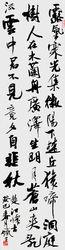 露氣寒光集微陽下楚丘猿啼洞庭
樹人在木蘭舟廣澤生明月蒼山夾亂
流雲中君不見竟夕自悲秋